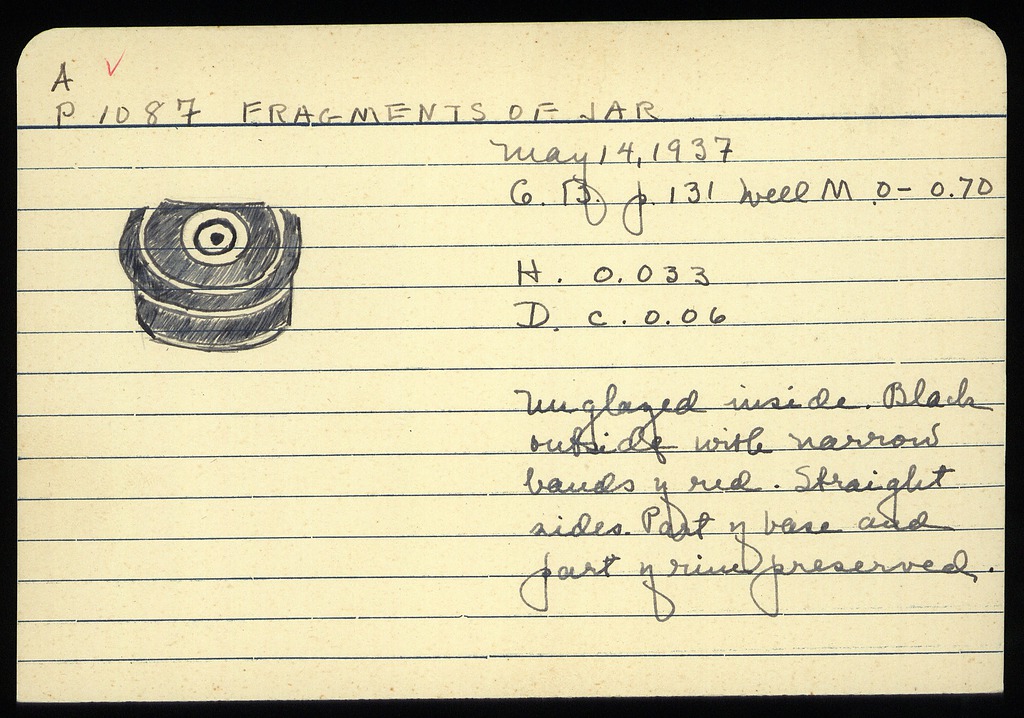 A ✓
P 1087 FRAGMENTS OF JAR
May 14, 1937
G. B. p. 131 Well M 0 - 0.70
H. 0.033
D. c. 0.06
Unglazed inside. Black
outside with narrow
bands of red. Straight
sides. Part of base and
part of rim preserved.